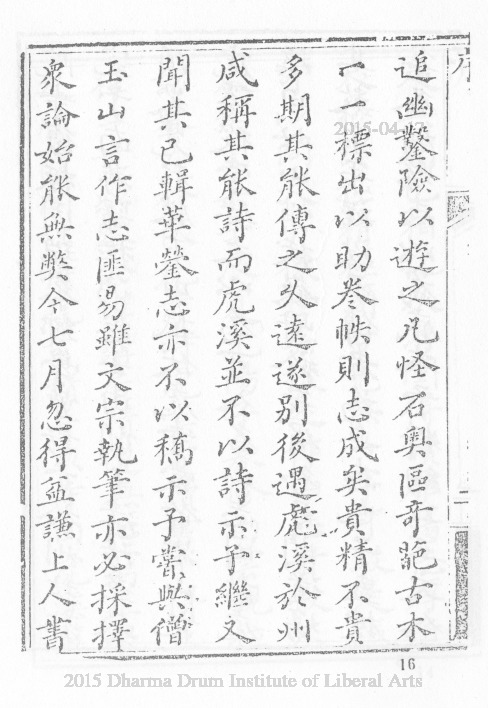 序
二
追幽鑿險以遊之凡怪石奧區奇葩古木
一一標出以助卷帙則志成矣貴精不貴
多期其能傳之久遠遂別後遇虎溪於州
咸稱其能詩而虎溪並不以詩示予繼又
聞其已輯華鎣志亦不以稿示予嘗與僧
玉山言作志匪易雖文宗執筆亦必採擇
衆論始能無弊今七月忽得益謙上人書
2015-04-17
16
2015 Dharma Drum Institute of Liberal Arts